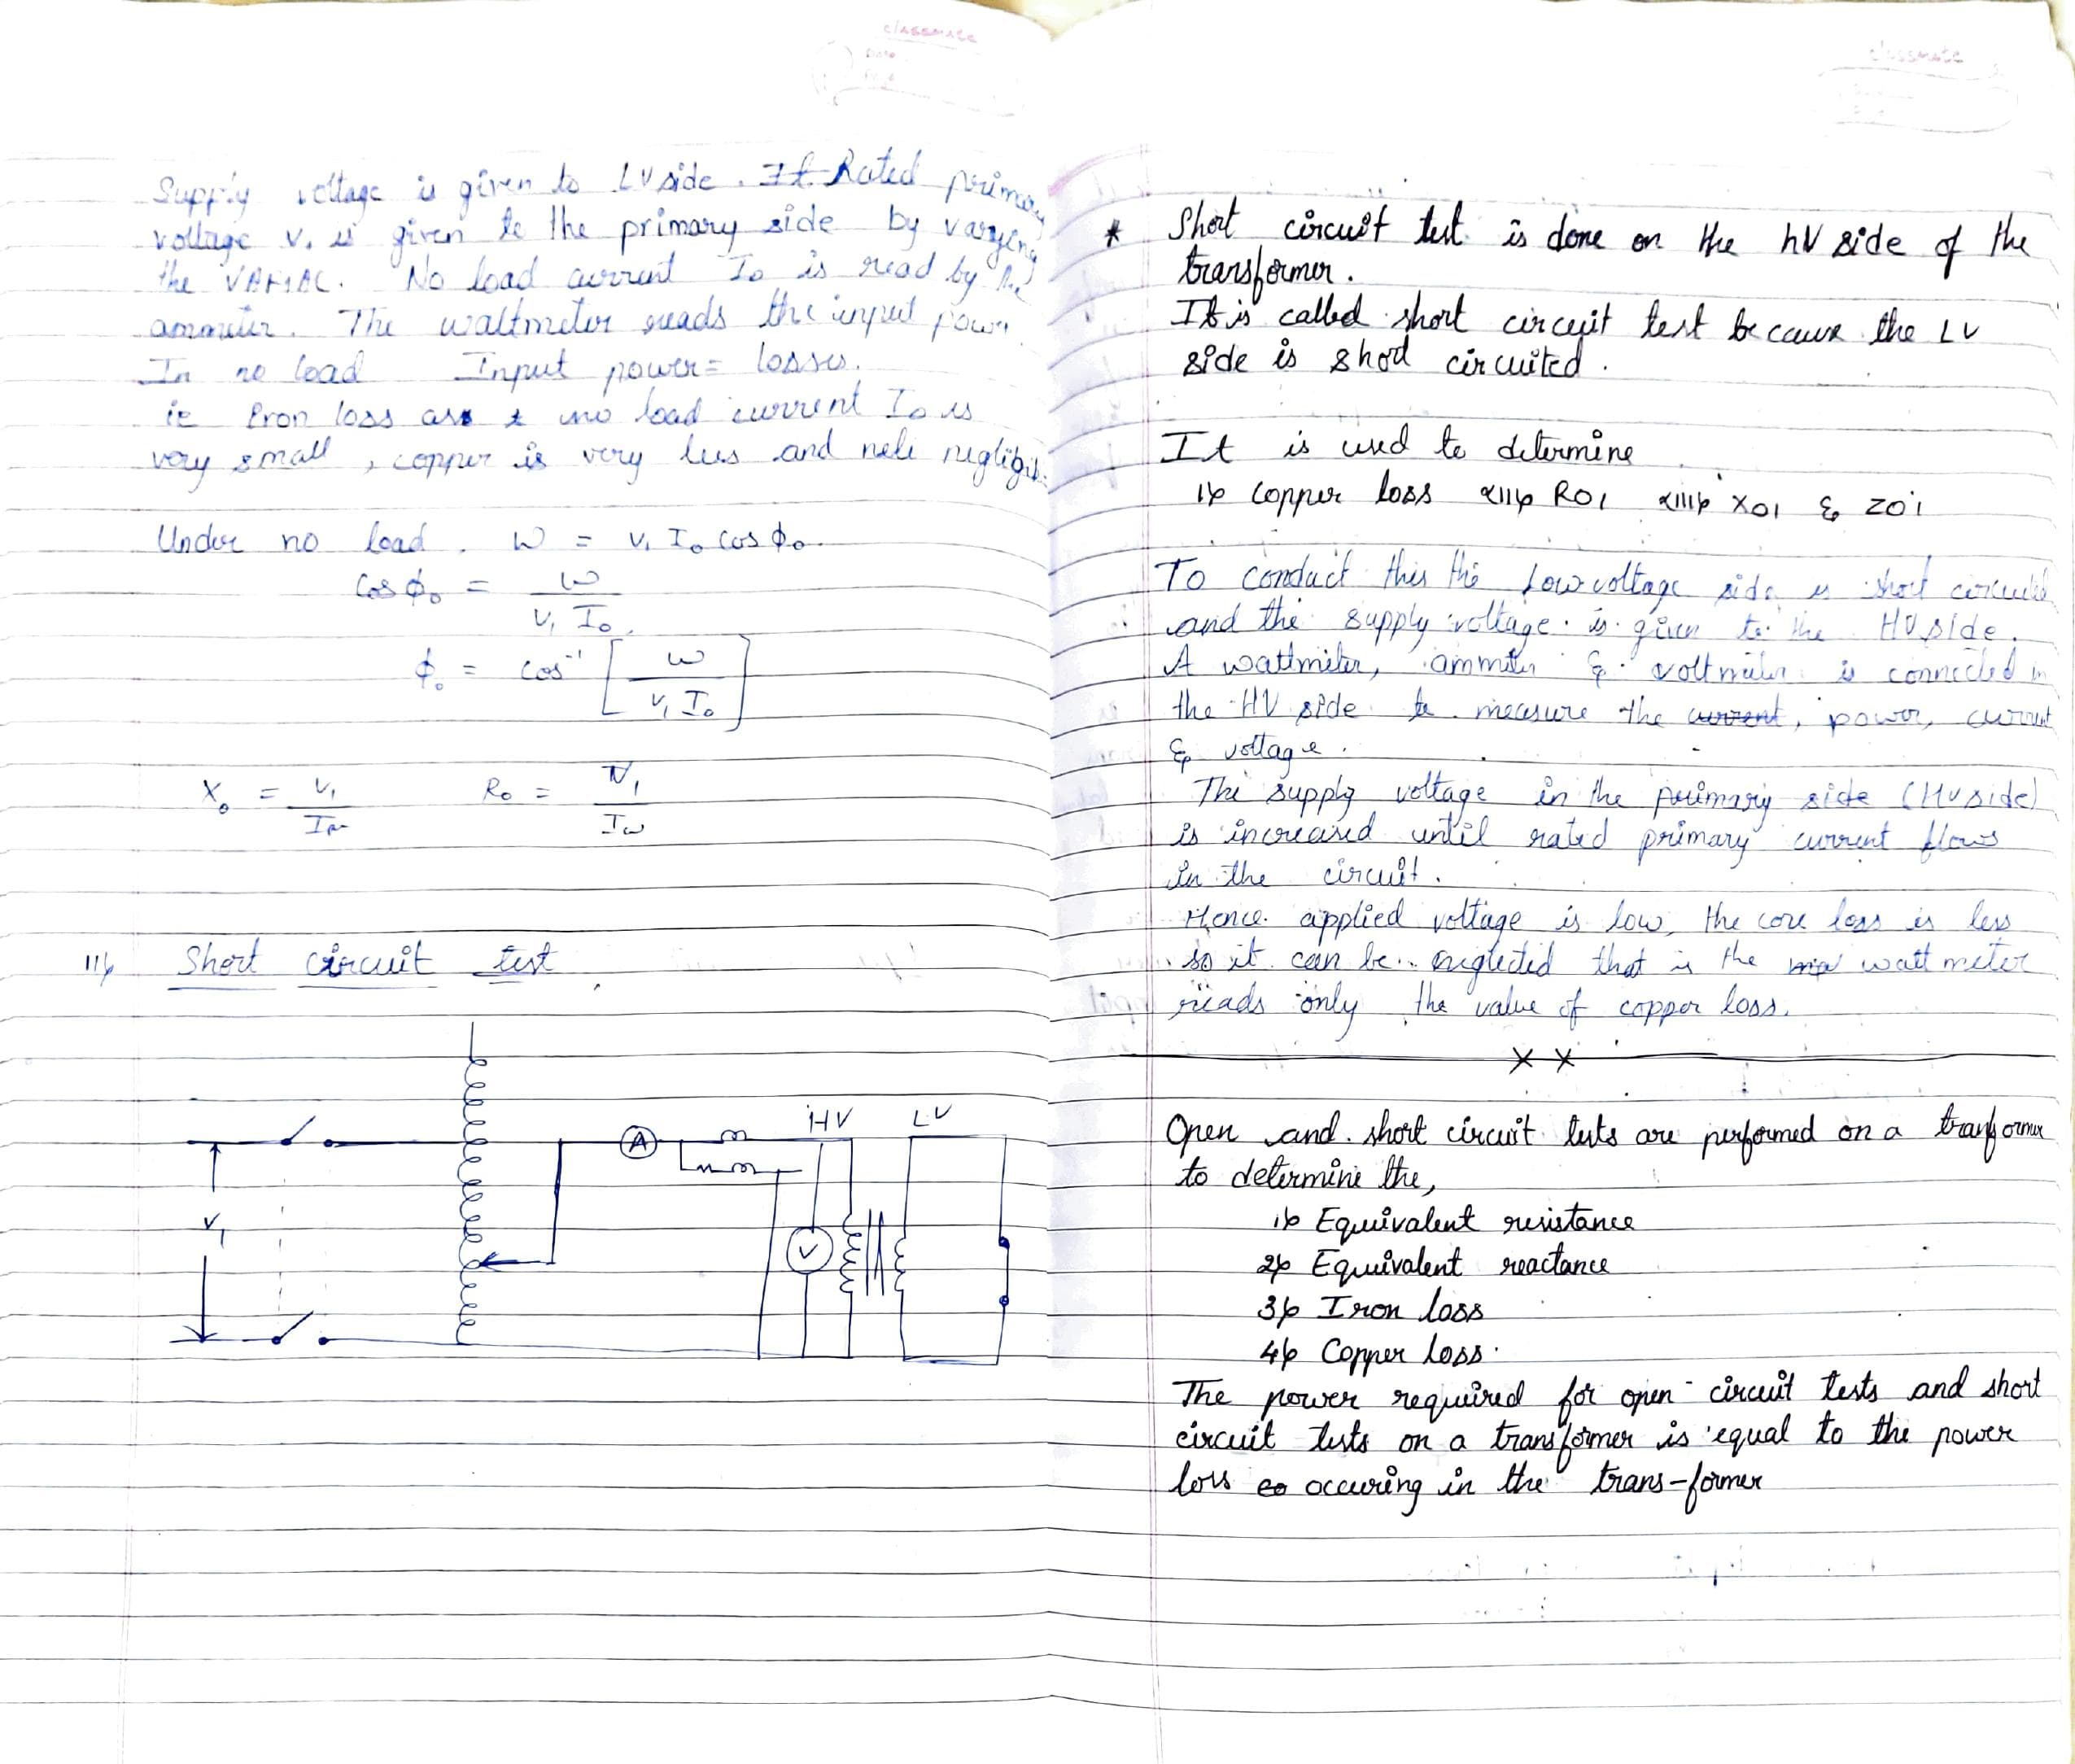 classmate
Date
Page
Supply voltage is given to LV side. It Rated primary
voltage V₁ is given to the primary side by varying
the VARIAC. No load current I₀ is read by the
ammeter. The waltmeter reads the input power.
In no load Input power = losses.
ie Iron loss as no load current I₀ is
very small, copper is very less and nele negligib
Under no load. W = V₁ I₀ cos ϕ₀.
Cos ϕ₀ = W / V₁ I₀
ϕ₀ = cos⁻¹ [W / V₁ I₀]
X₀ = V₁ / Iμ R₀ = V₁ / Iw
11) Short circuit test
HV LV
A
V₁
V
classmate
* Short circuit test is done on the hV side of the
transformer.
It is called short circuit test because the LV
side is short circuited.
It is used to determine
i) Copper loss ii) R01 iii) X01 & Z01
To conduct this the Low voltage side is short circuited
and the supply voltage is given to the HV side.
A wattmeter, ammeter & voltmeter is connected in
the HV side to measure the current, power, current
& voltage.
The supply voltage in the primary side (HV side)
is increased until rated primary current flows
in the circuit.
Hence applied voltage is low, the core loss is less
so it can be neglected that is the watt meter
reads only the value of copper loss.
x x
Open and short circuit tests are performed on a tranformer
to determine the,
1) Equivalent resistance
2) Equivalent reactance
3) Iron loss
4) Copper loss.
The power required for open-circuit tests and short
circuit tests on a transformer is equal to the power
loss eo occuring in the trans-former